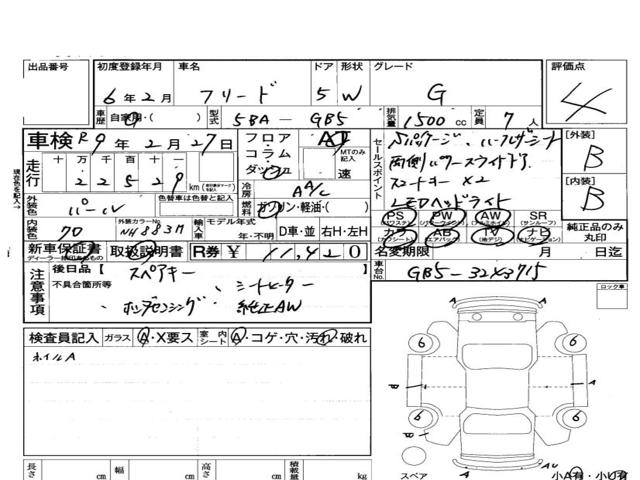 出品番号 初度登録年月 車名 ドア 形状 グレード 評価点
6年2月 フリード 5 W G 4
車歴 自家用・( ) 型式 5BA－GB5 排気量 1500cc 定員 7人
車検 R9年2月27日 フロア コラム ダッシュ AT MTのみ記入 速
セールスポイント Sパッケージ、ハーフレザーシート
両側パワースライドドア
スマートキー×2
LEDヘッドライト
[外装] B
[内装] B
走行 十万千百十一 22529km
冷房 A/C
現在色を記入→
外装色 パール 色替車は色替と記入
燃料 ガソリン・軽油・( )
PS PW AW SR (サンルーフ)
カワ AB TV ナビ
(カワシート) (エアバッグ) (地デジ) (ナビゲーション)
純正品のみ丸印
内装色 70 外装カラーNo. NH883M 輸入車 モデル年式 年・不明 D車・並 右H・左H
新車保証書 ディーラー捺印あるもの 取扱説明書 R券 ¥ 11,420
名変期限 月 日迄
注意事項 後日品 [スペアキー]
不具合箇所等 シートヒーター
ホンダセンシング 純正AW
車台No. GB5－
ロック車
検査員記入 ガラス A・X要ス 室内シート A・コゲ・穴・汚れ・破れ
ホイルA
A A
6 6
B A
6 6
A AU
長さ cm 幅 cm 高さ cm 積載量 kg
スペア 小A有・小U有